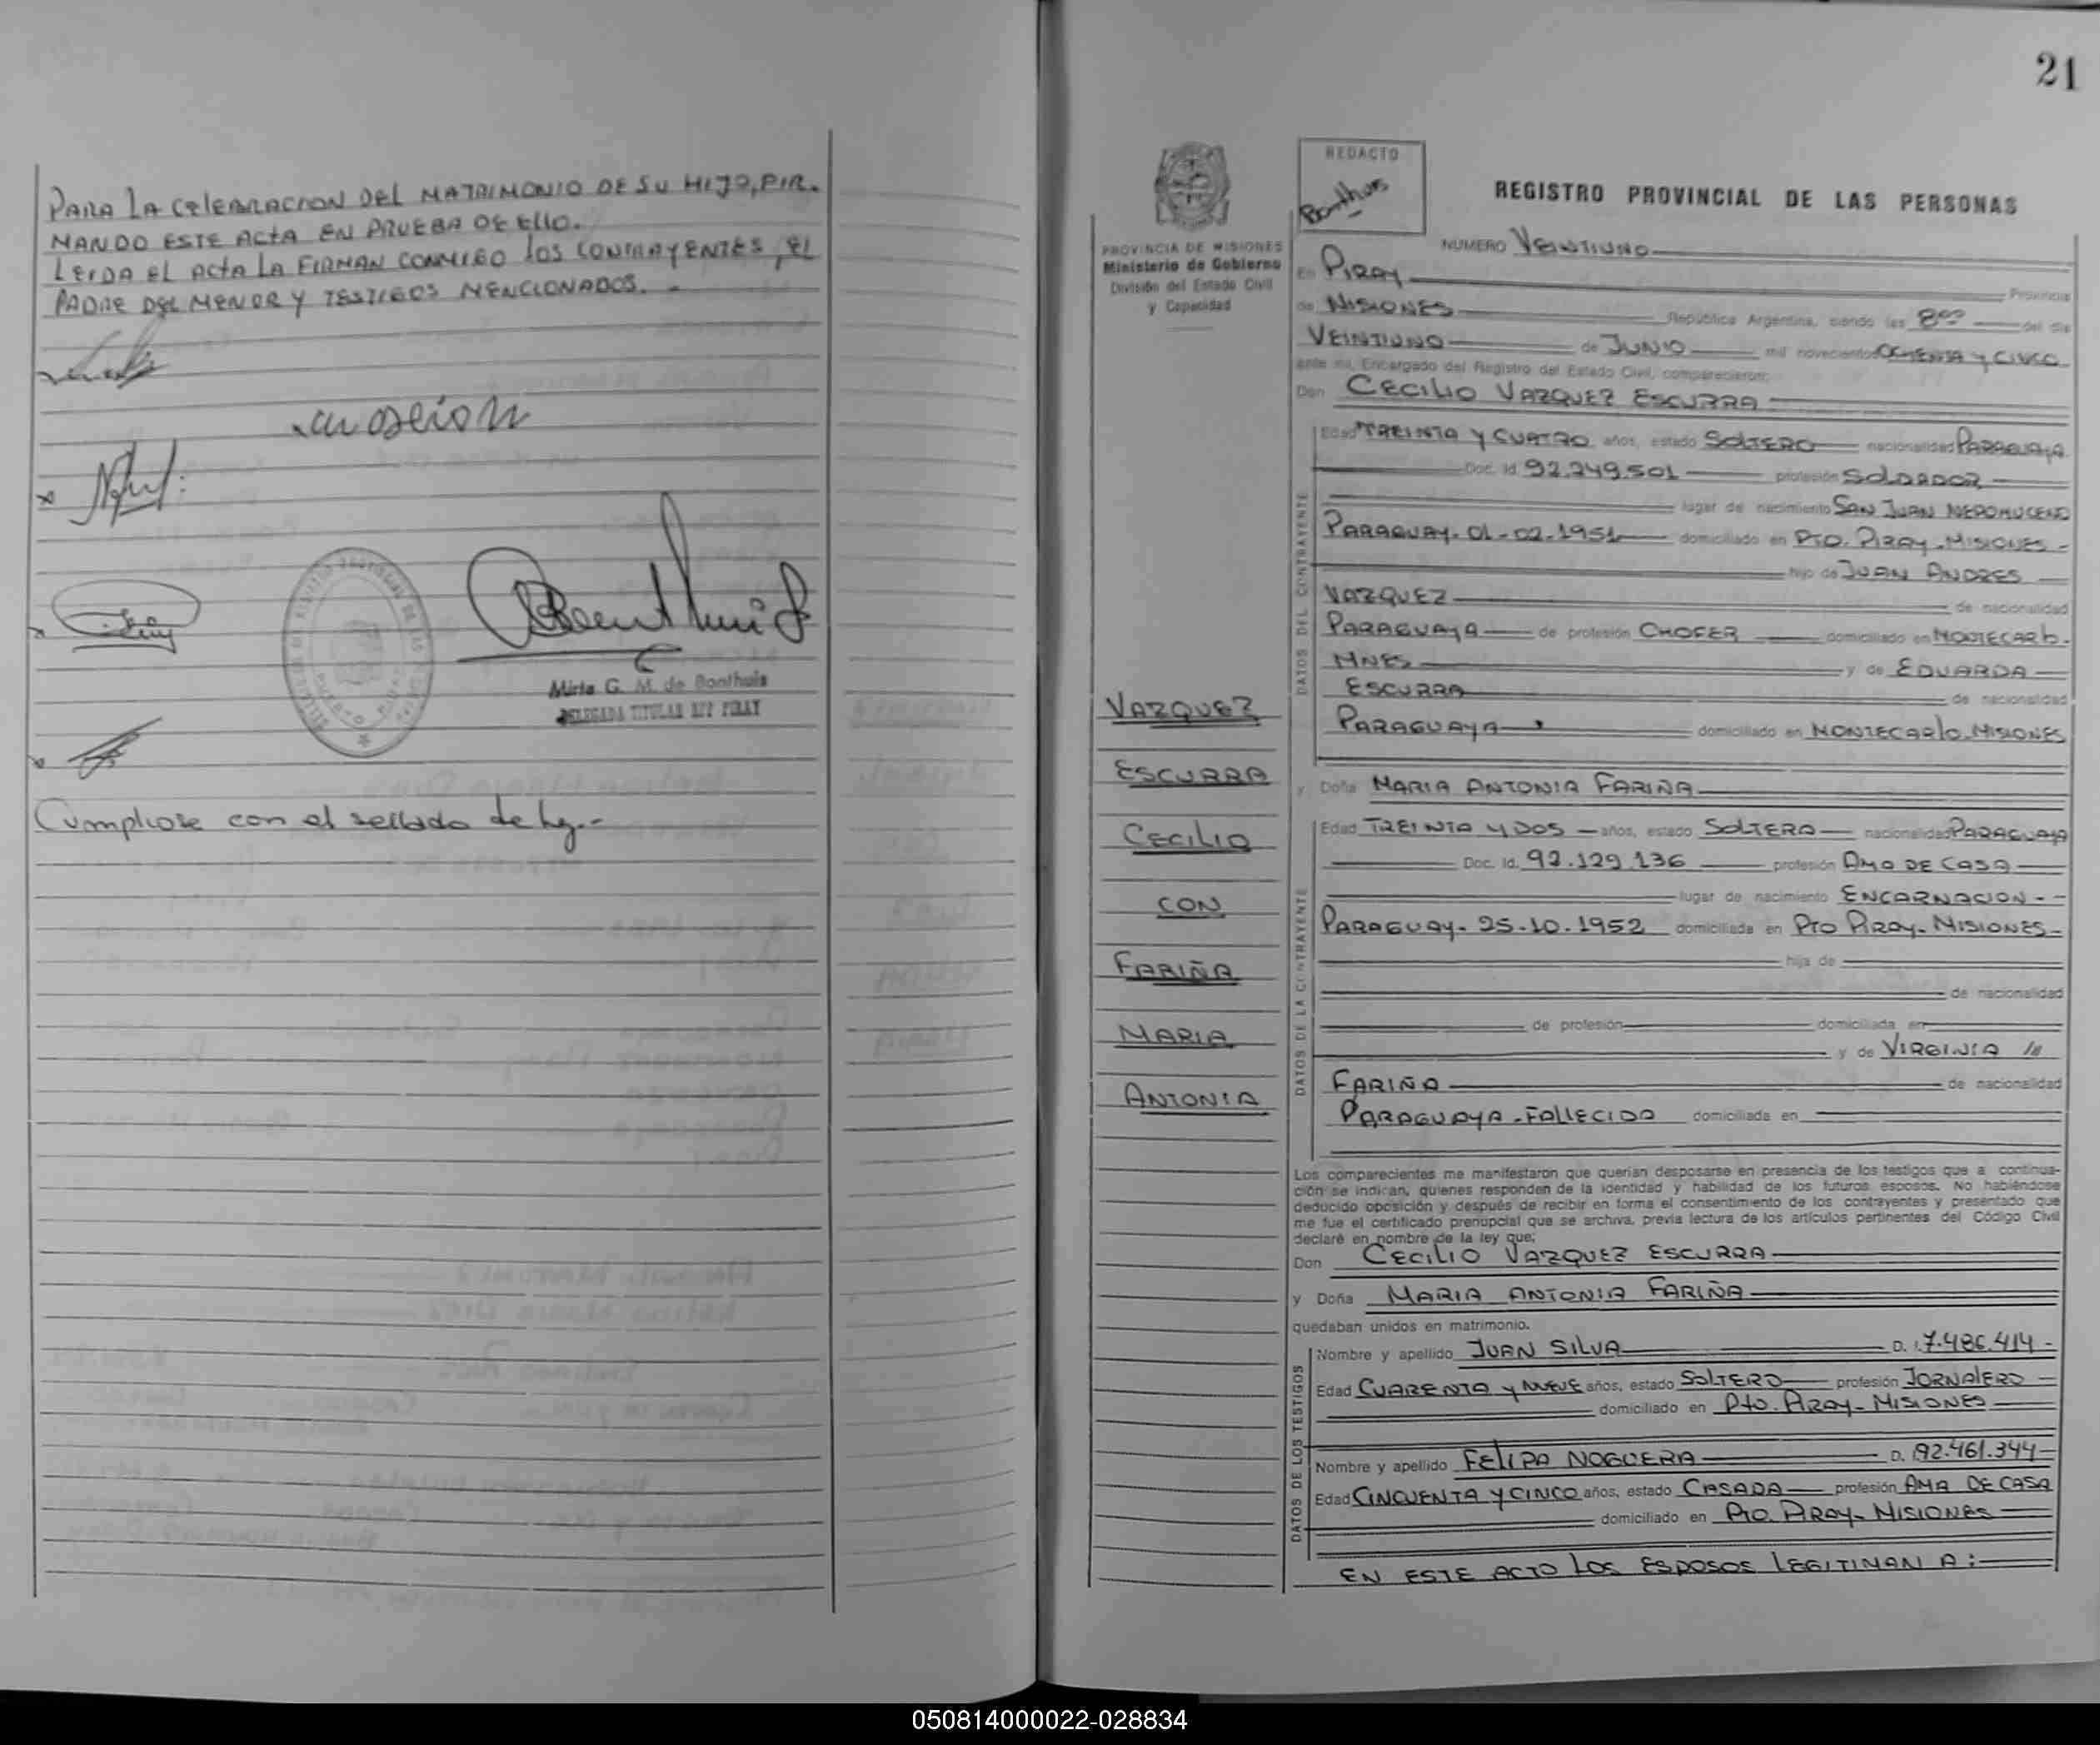 PARA LA CELEBRACION DEL MATRIMONIO DE SU HIJO, FIR-
MANDO ESTE ACTA EN PRUEBA DE ELLO.
LEIDA EL ACTA LA FIRMAN CONMIGO LOS CONTRAYENTES, EL
PADRE DEL MENOR Y TESTIGOS MENCIONADOS. -
Mirta G. M. de Bonthuis
DELEGADA TITULAR PIRAY
Cumpliose con el sellado de ley.-
21
PROVINCIA DE MISIONES
Ministerio de Gobierno
División del Estado Civil
y Capacidad
VAZQUEZ
ESCURRA
CECILIO
CON
FARIÑA
MARIA
ANTONIA
REDACTO
Bonthuis
REGISTRO PROVINCIAL DE LAS PERSONAS
NUMERO VEINTIUNO
En PIRAY Provincia
de MISIONES República Argentina, siendo las 8oo del día
VEINTIUNO de JUNIO mil novecientos OCHENTA Y CINCO
ante mi, Encargado del Registro del Estado Civil, comparecieron:
Don CECILIO VAZQUEZ ESCURRA
DATOS DEL CONTRAYENTE
Edad TREINTA Y CUATRO años, estado SOLTERO nacionalidad PARAGUAYA
Doc. Id. 92.249.501 profesión SOLDADOR
lugar de nacimiento SAN JUAN NEPOMUCENO
PARAGUAY. 01-02-1951 domiciliado en PTO. PIRAY-MISIONES-
hijo de JUAN ANDRES
VAZQUEZ de nacionalidad
PARAGUAYA de profesión CHOFER domiciliado en MONTECARLO-
MNES y de EDUARDA
ESCURRA de nacionalidad
PARAGUAYA domiciliado en MONTECARLO-MISIONES
y Doña MARIA ANTONIA FARIÑA
DATOS DE LA CONTRAYENTE
Edad TREINTA Y DOS años, estado SOLTERA nacionalidad PARAGUAYA
Doc. Id. 92.129.136 profesión AMA DE CASA
lugar de nacimiento ENCARNACION--
PARAGUAY- 25-10-1952 domiciliada en PTO PIRAY-MISIONES-
hija de
de nacionalidad
de profesión domiciliada en
y de VIRGINIA
FARIÑA de nacionalidad
PARAGUAYA-FALLECIDA domiciliada en
Los comparecientes me manifestaron que querían desposarse en presencia de los testigos que a continua-
ción se indican, quienes responden de la identidad y habilidad de los futuros esposos. No habiéndose
deducido oposición y después de recibir en forma el consentimiento de los contrayentes y presentado que
me fue el certificado prenupcial que se archiva, previa lectura de los artículos pertinentes del Código Civil
declaré en nombre de la ley que:
Don CECILIO VAZQUEZ ESCURRA
y Doña MARIA ANTONIA FARIÑA
quedaban unidos en matrimonio.
DATOS DE LOS TESTIGOS
Nombre y apellido JUAN SILVA D. I. 7.486.414-
Edad CUARENTA Y NUEVE años, estado SOLTERO profesión JORNALERO
domiciliado en Pto. PIRAY-MISIONES
Nombre y apellido FELIPA NOGUERA D. I. 92.461.344-
Edad CINCUENTA Y CINCO años, estado CASADA profesión AMA DE CASA
domiciliado en Pto. PIRAY-MISIONES
EN ESTE ACTO LOS ESPOSOS LEGITIMAN A:
050814000022-028834